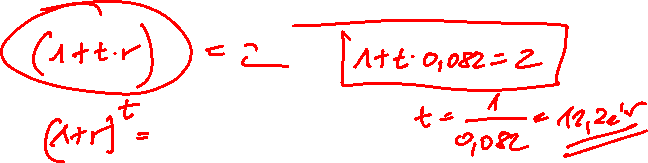 (1+t·r) = 2   1+t·0,082=2
(1+r)^t =   t = 1/0,082 = 12,2 év